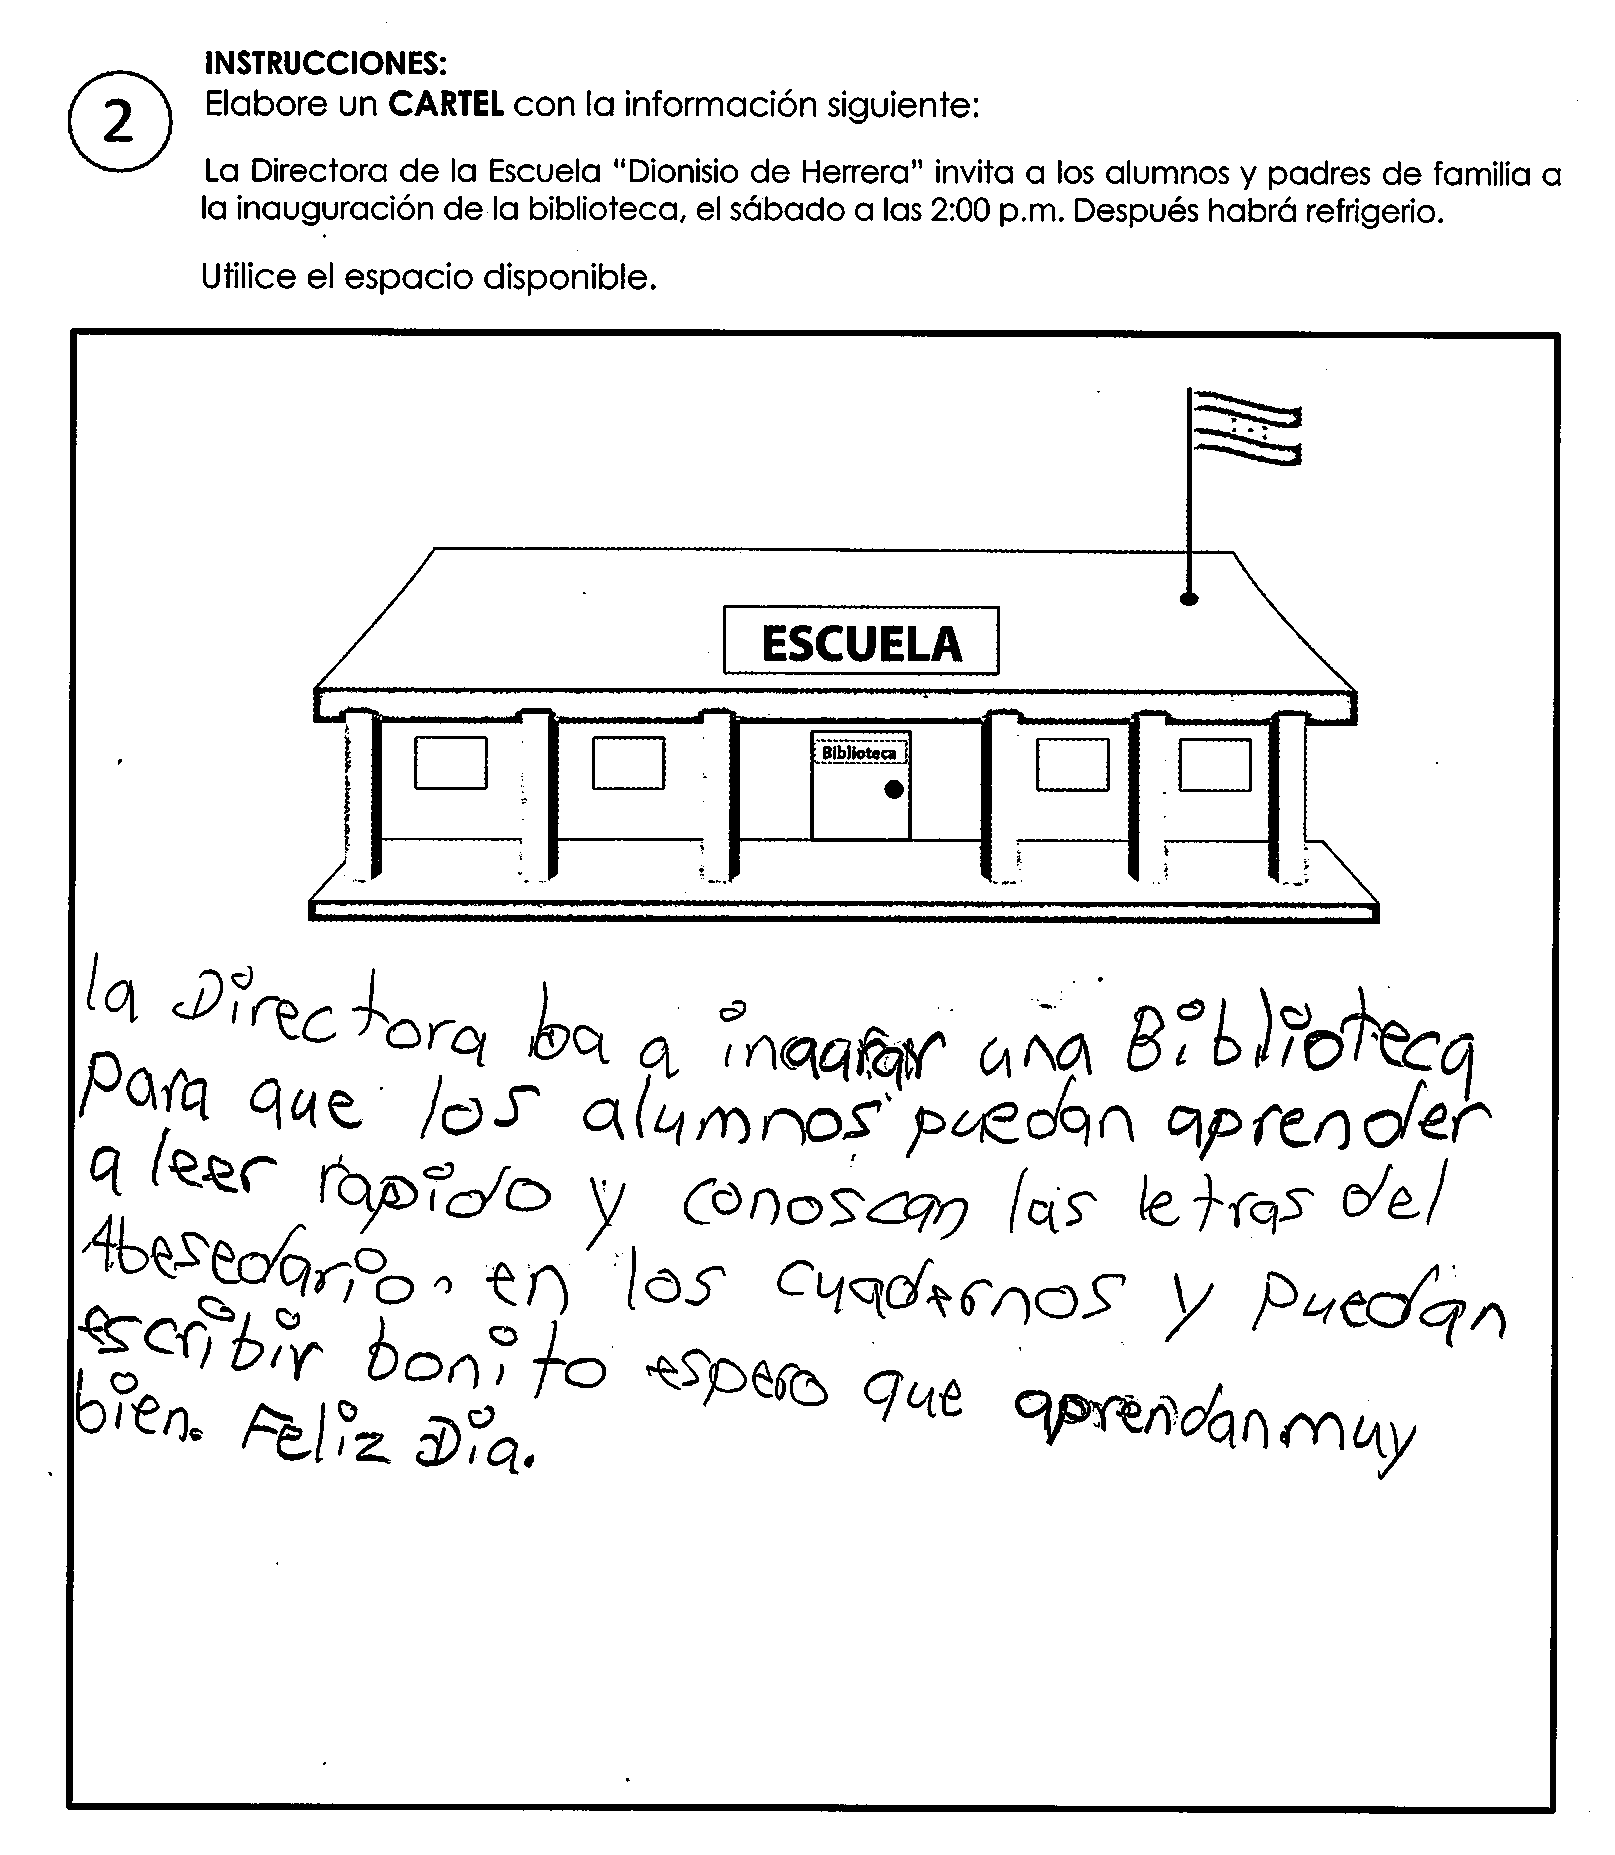 INSTRUCCIONES:
2
Elabore un CARTEL con la información siguiente:
La Directora de la Escuela "Dionisio de Herrera" invita a los alumnos y padres de familia a
la inauguración de la biblioteca, el sábado a las 2:00 p.m. Después habrá refrigerio.
Utilice el espacio disponible.
ESCUELA
Biblioteca
la Directora ba a una Biblioteca
para que los alumnos puedan aprender
a leer rapido y conoscan las letras del
Abesedario. en los cuadernos y puedan
escribir bonito espero que aprendan muy
bien. Feliz Dia.